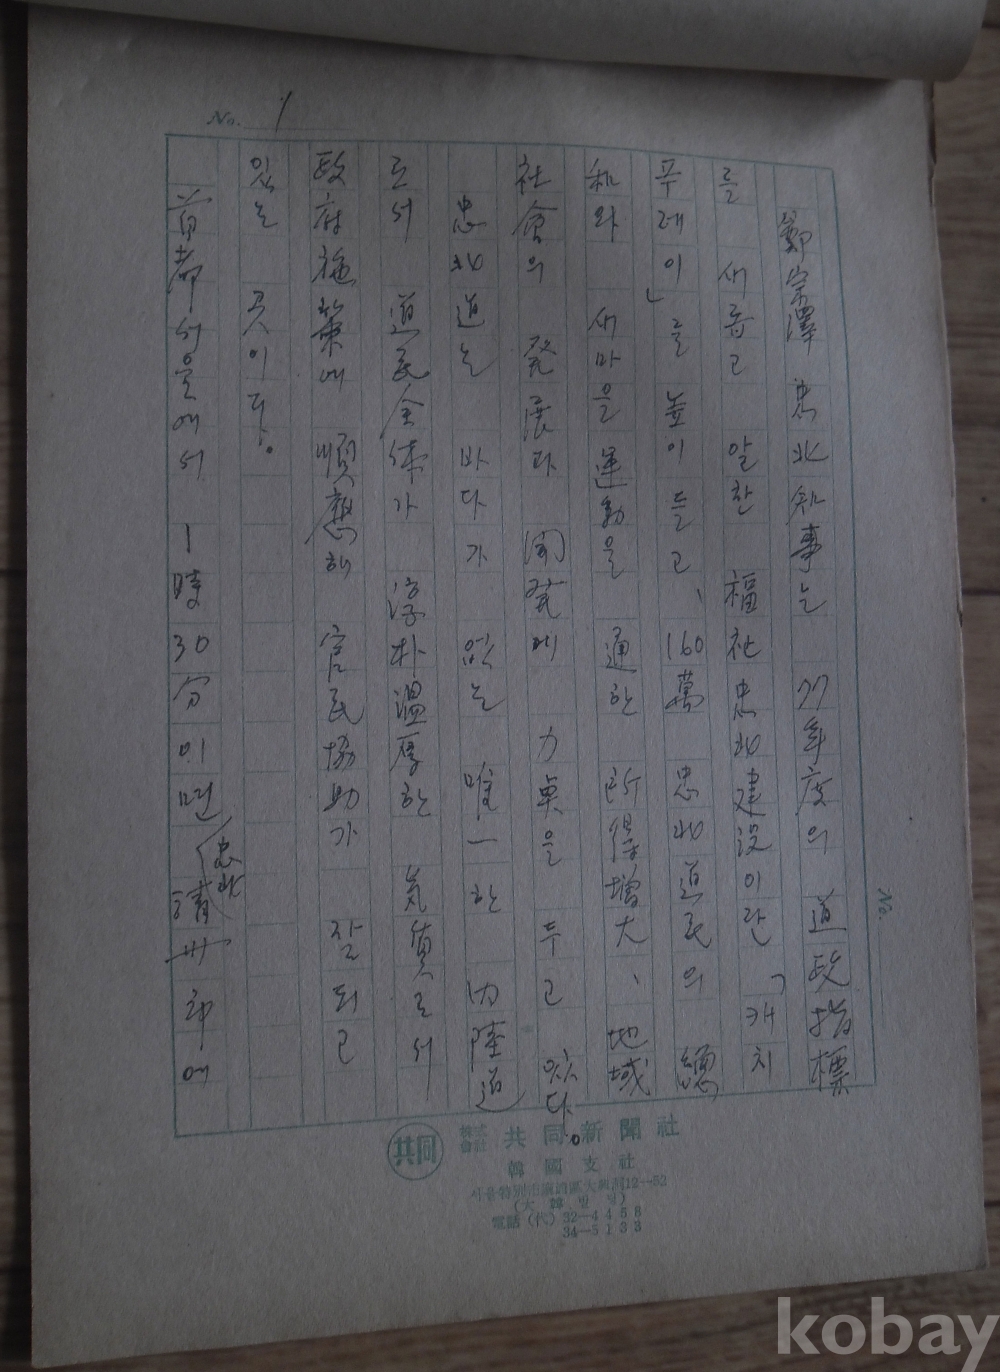 No. 1
鄭宗澤 忠北知事는 77年度의 道政指標
를 새롭고 알찬 福祉忠北建設이란 「캐치
푸레이」를 높이 들고、160萬 忠北道民의 總
和와 새마을 運動을 通한 所得增大、地域
社會의 発展과 開発에 力点을 두고 있다。
忠北道는 바다가 없는 唯一한 內陸道
로서 道民全体가 淳朴溫厚한 気質로서
政府施策에 順應해 官民協助가 잘되고
있는 곳이다。
首都서울에서 1時30分이면 (忠北) 淸州市에
No.
共同
株式會社 共同新聞社
韓國支社
電話(代) 32―4458
34―5133
kobay